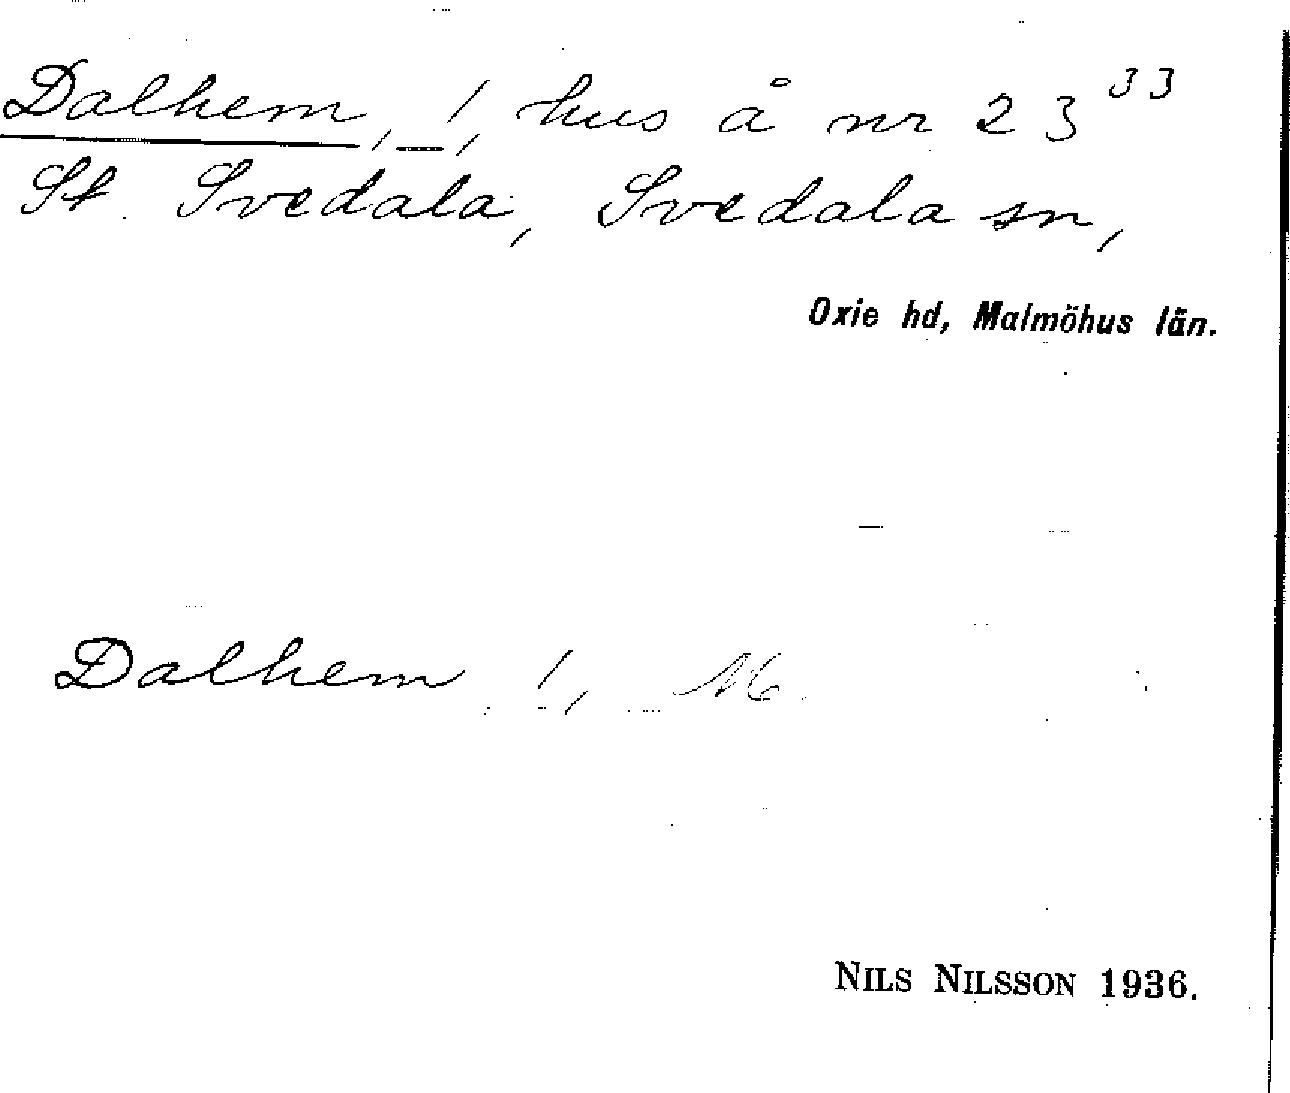 Dalhem, !, hus å nr 23³³
St. Svedala, Svedala sn,
Oxie hd, Malmöhus län.
Dalhem !, M.
NILS NILSSON 1936.